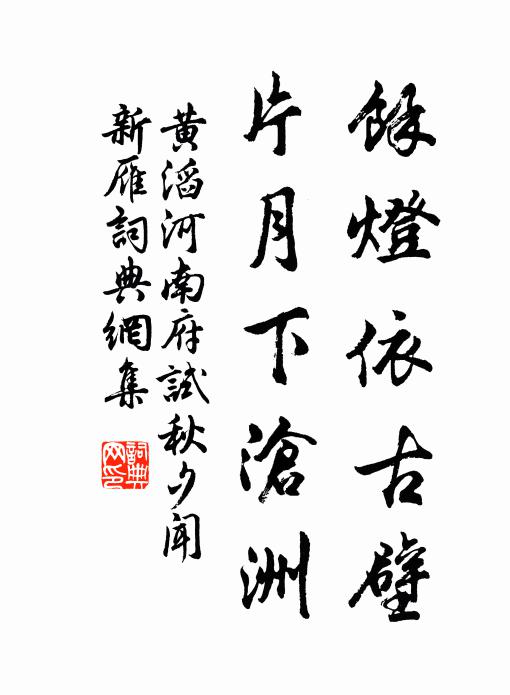 餘燈依古壁
片月下滄洲
黃滔河南府試秋夕聞
新雁詞典網集
詞典
网印